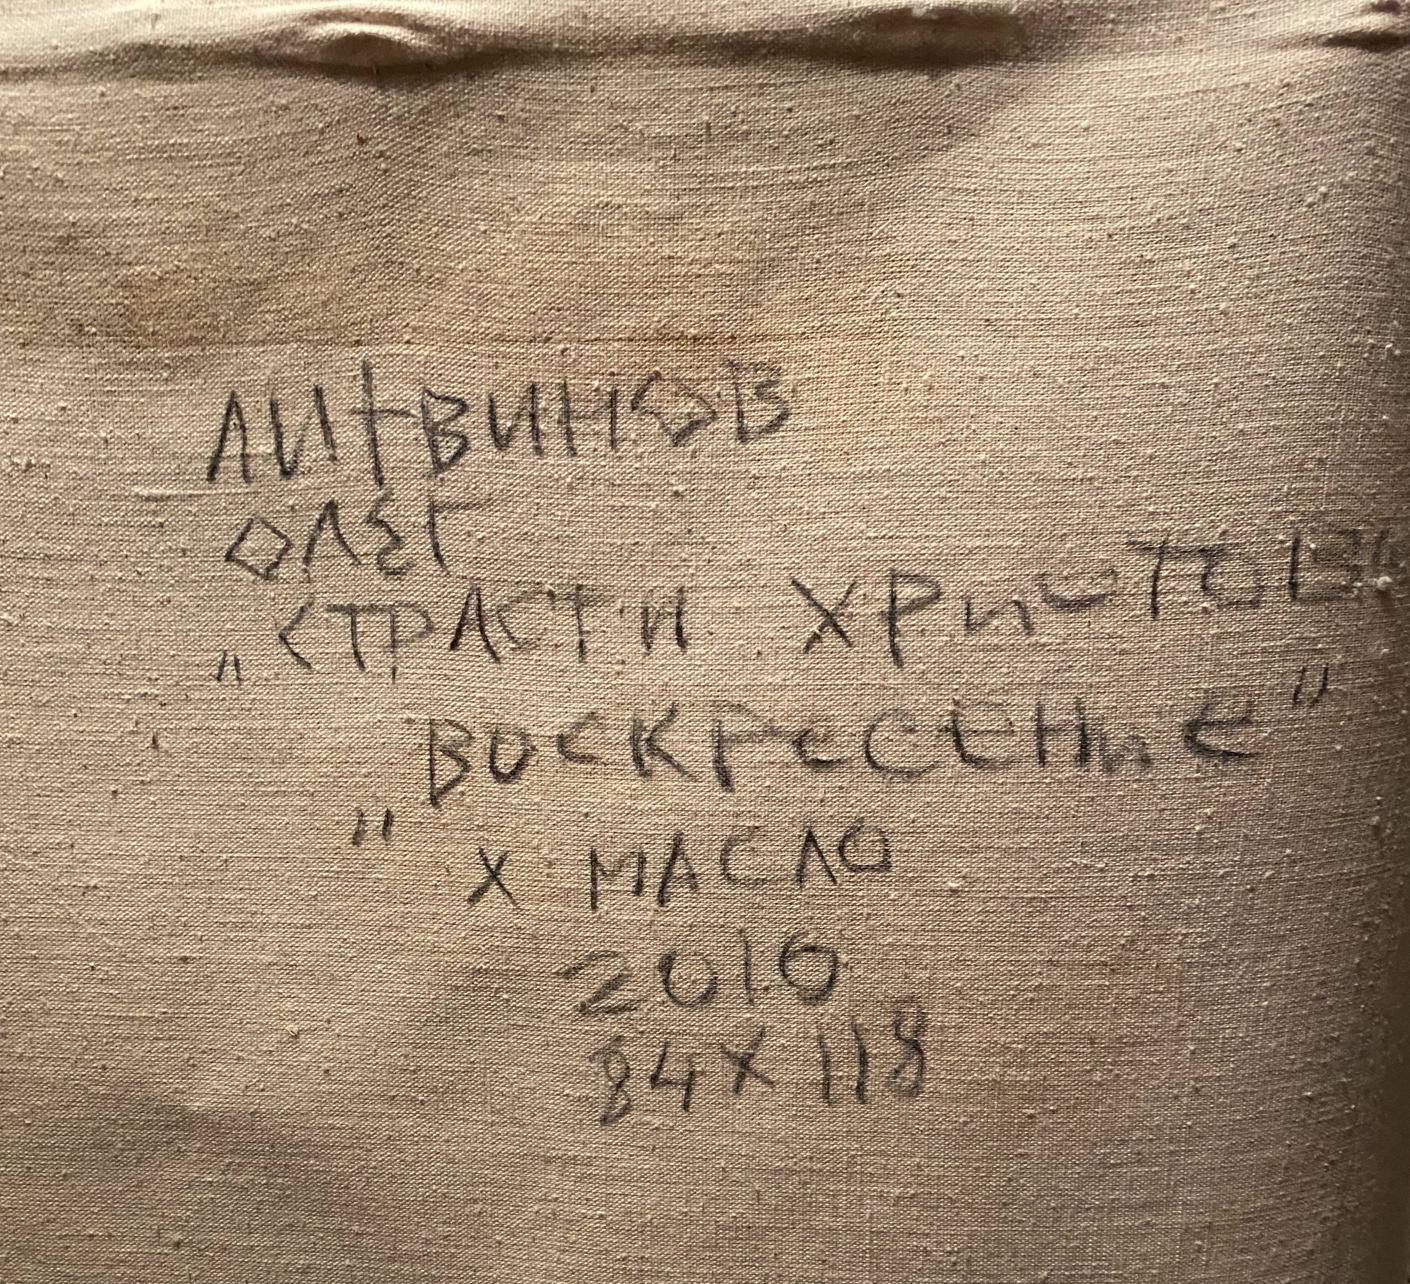 ЛИТВИНОВ
ОЛЕГ
„СТРАСТИ ХРИСТОВЫ
ВОСКРЕСЕНИЕ"
" Х МАСЛО
2016
84Х118